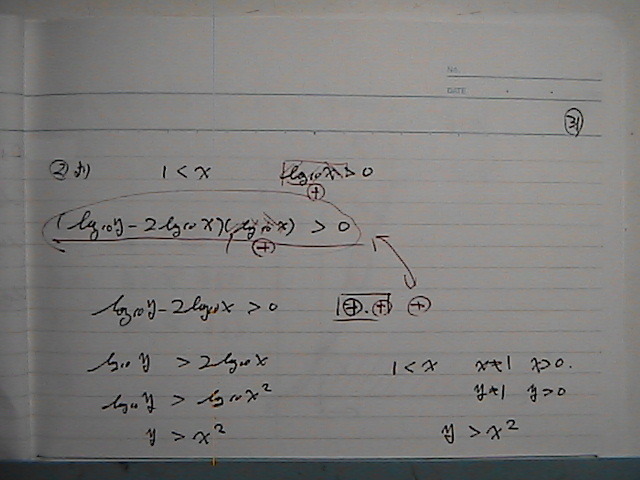 No.
DATE
③
②より 1 < x log₁₀x > 0
⊕
(log₁₀y - 2log₁₀x)(log₁₀x) > 0
⊕
log₁₀y - 2log₁₀x > 0 ⊕・⊕ ⊕
log₁₀y > 2log₁₀x 1 < x x≠1 x>0.
log₁₀y > log₁₀x² y≠1 y>0
y > x² y > x²